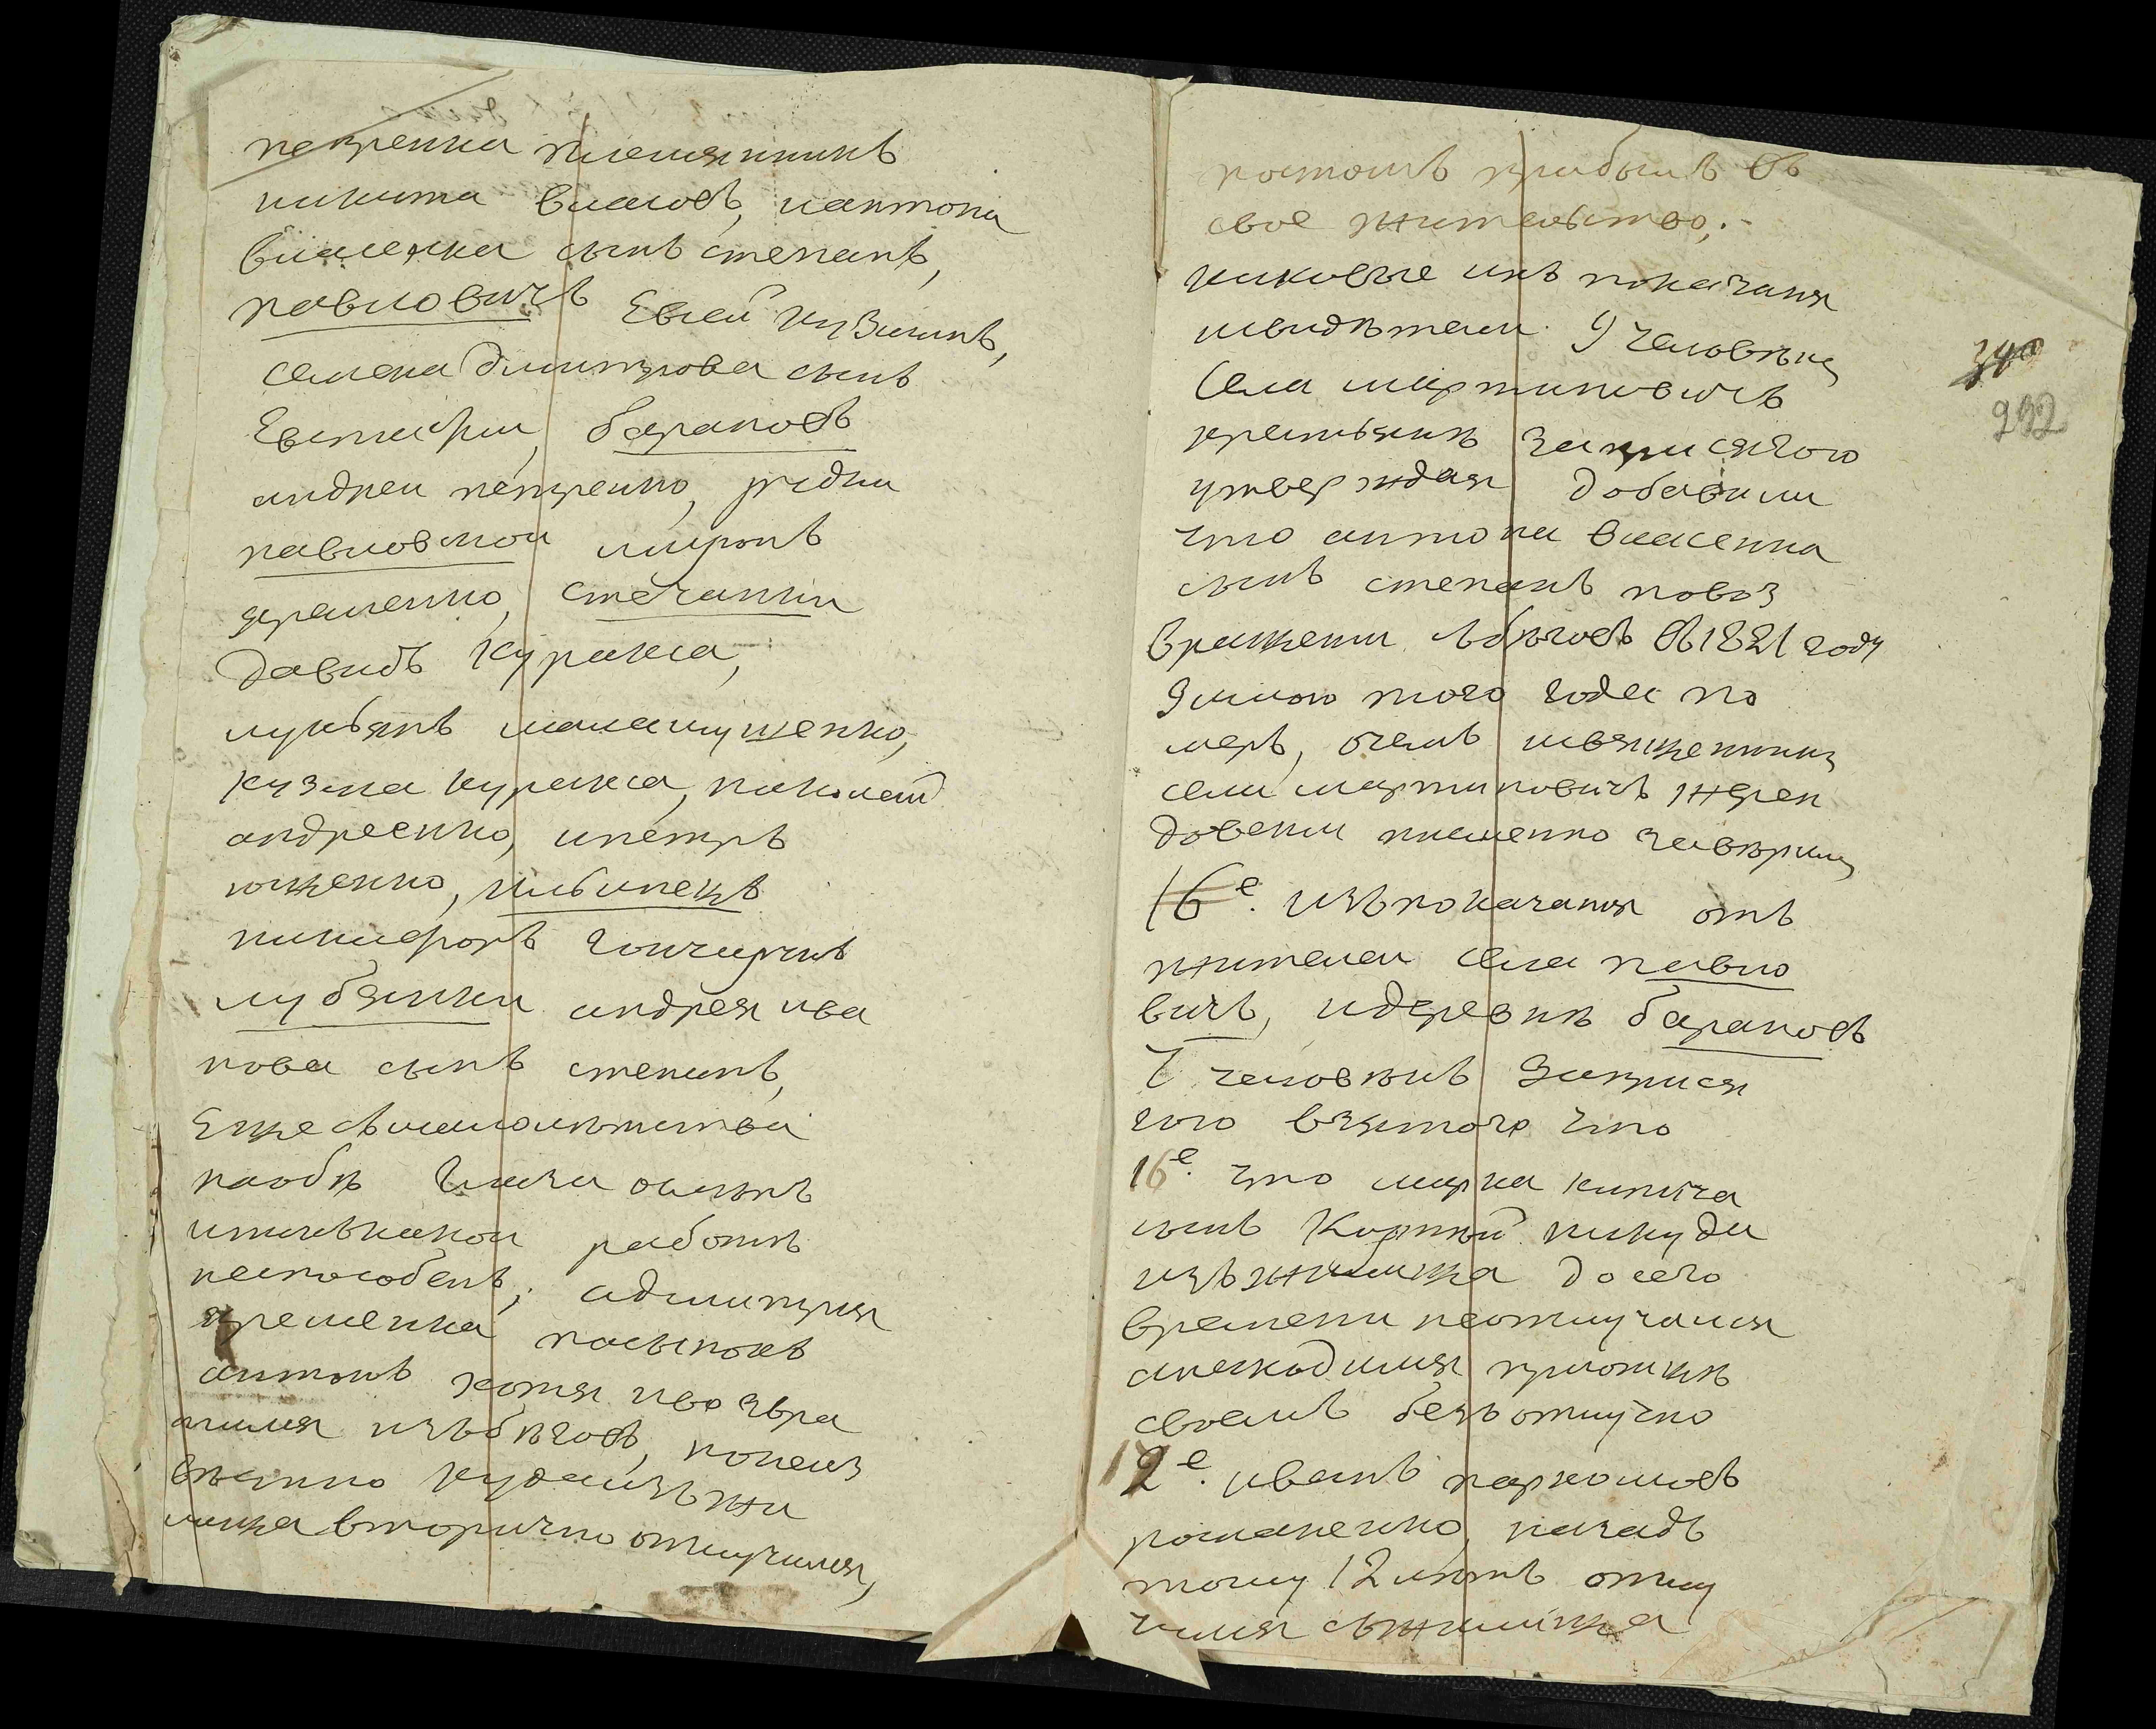 петренка племянникъ
никита власовъ, иантона
власенка сынъ степанъ,
павловичъ Евсей кузминъ,
семена дмитрова сынъ
Евстафии, барановъ
андреи петренко, рудни
павловской миронъ
яременко, стечанки
давидъ Куракса,
лукьянъ макамущенко,
кузма куракса, николай
андреенко, ипетръ
ющенко, кибинецъ
никифоръ гончаръ
лубянки андрея ива
нова сынъ степанъ,
Еще съмалолетства
наобѣ глаза ослѣпъ
иниквкакой работѣ
неспособенъ, адмитрия
яременка пасынокъ
антонъ хотя ивозвра
тился изъбѣговъ, нонеиз
вѣстно кудаизъжи
лища вторично отлучился,
потомъ прибылъ въ
свое жительство;.-
каковые ихъ показания
исвидѣтели 9 человѣкъ
Села мартиновичъ
крестьянъ заприсягою
утверждая добавили
что антона власенка
сынъ степанъ повоз
вращении збѣговъ въ1821 году
Зимою того года по
меръ, очемъ исвященникъ
села мартиновичъ
довски писменно завѣрилъ
16е. изъпоказания отъ
жителеи села павло
вичъ, идеревнѣ барановъ
7 человѣкъ Заприся
гою взятого что
16е. что марка кипича
сынъ Корнѣй никуда
изъжилища досего
времени неотлучался
анаходился приотцѣ
своемъ безъотлучно
12е. иванъ пархомовъ
романенко, назадъ
тому 12 лѣтъ отлу
чился съжилища
340
232